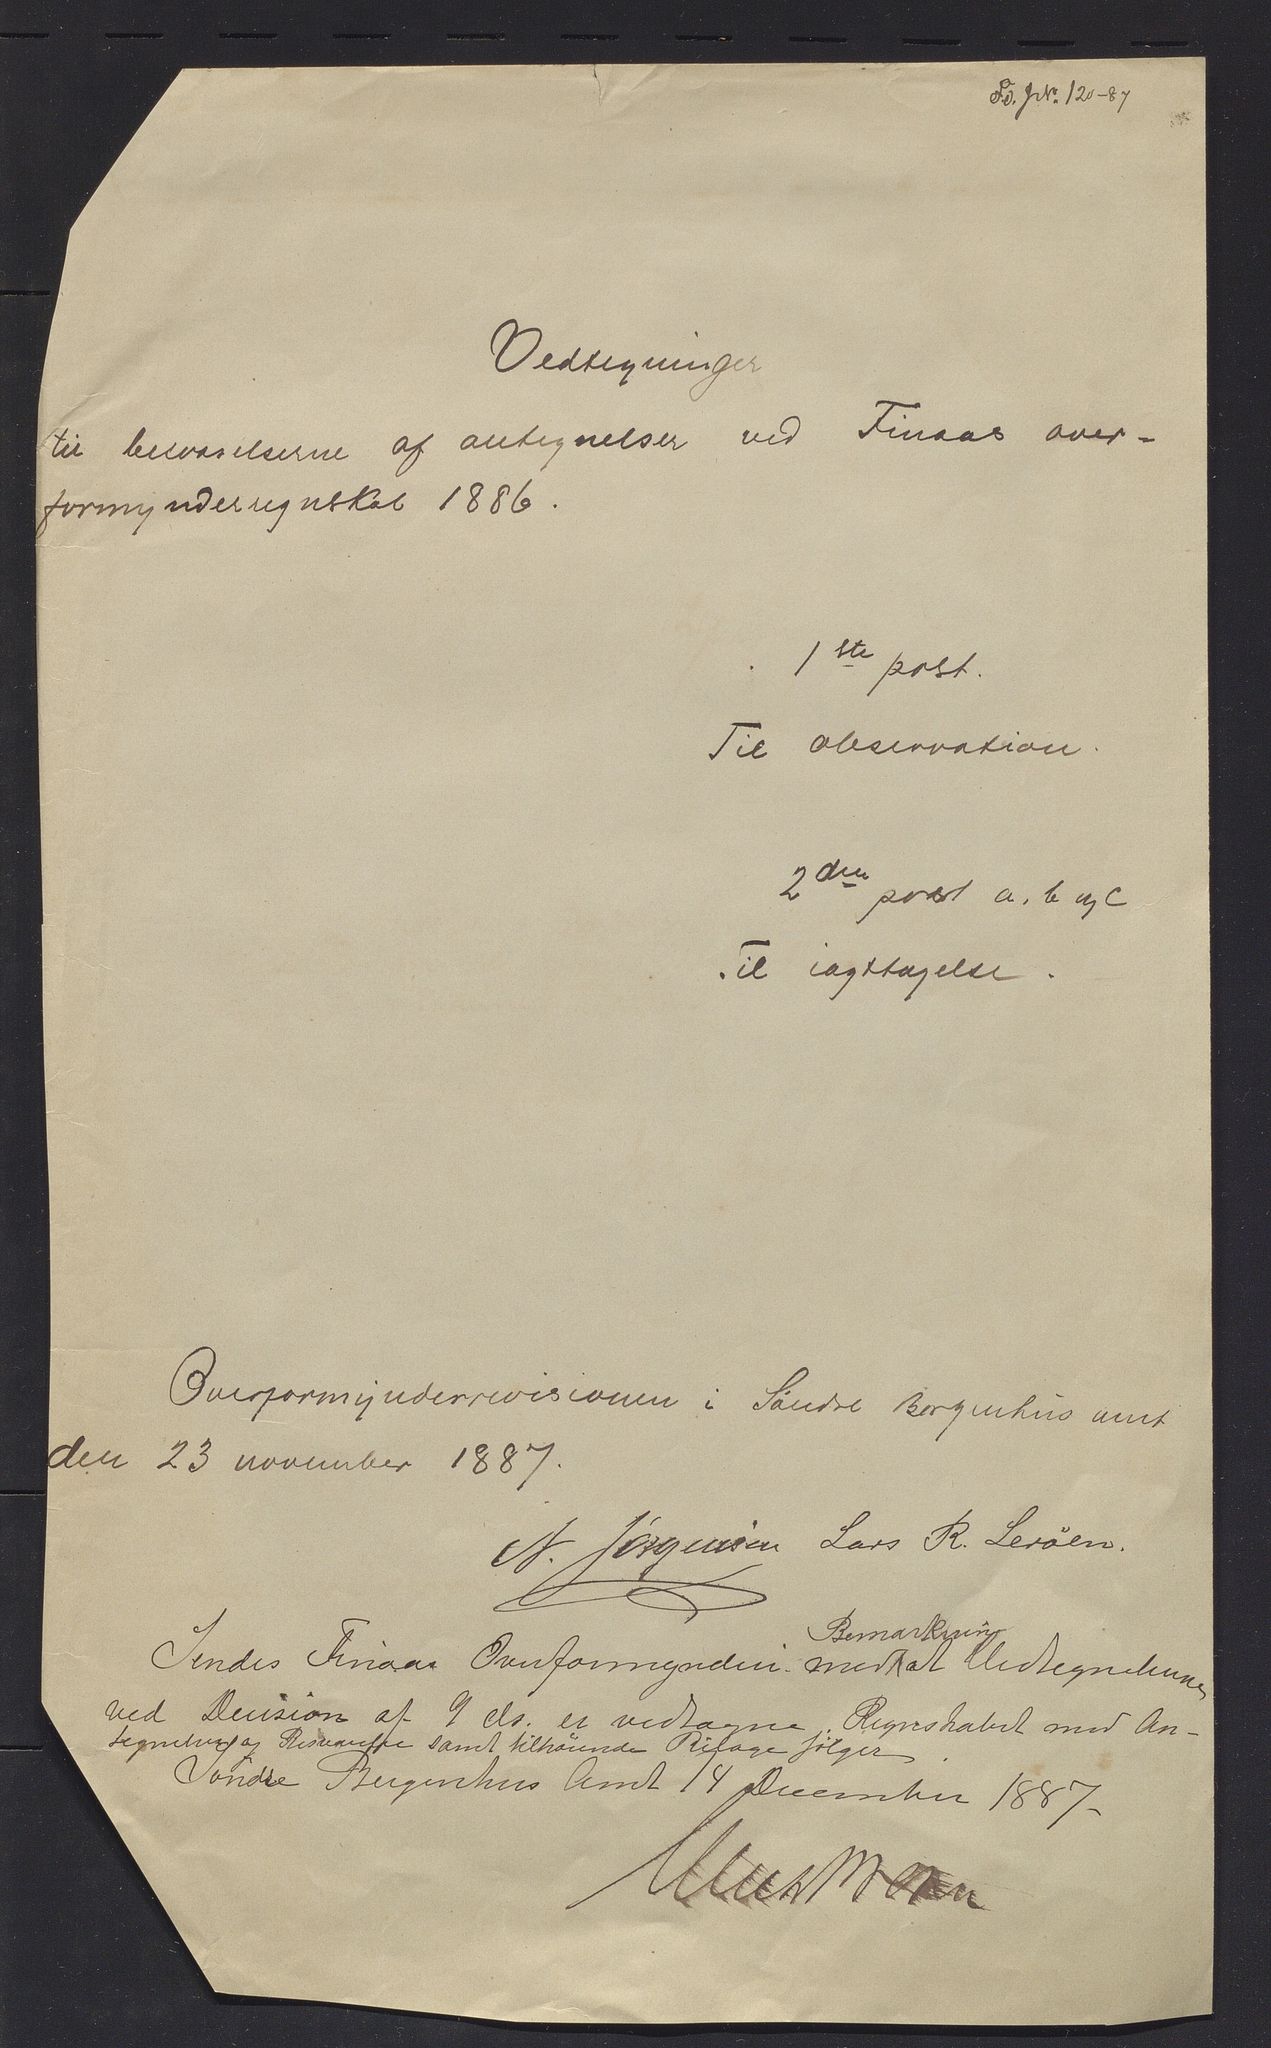 Fd. JNo. 120-87
Vedtegninger
til besvarelserne af antegnelser ved Finaas over-
formynderregnskab 1886.
1ste post.
Til observation.
2den post a, b og c
Til iagttagelse.
Overformynderrevisionen i Söndre Bergenhus amt
den 23 november 1887.
N. Jörgensen Lars R. Leröen.
Bemærkning
Sendes Finaas Overformynderi med at Vedtegnelserne
ved Decision af 9 ds. er vedtagne. Regnskabet med An-
tegnelser og Besvarelse samt tilhörende Bilage fölger.
Söndre Bergenhus Amt 14 December 1887.